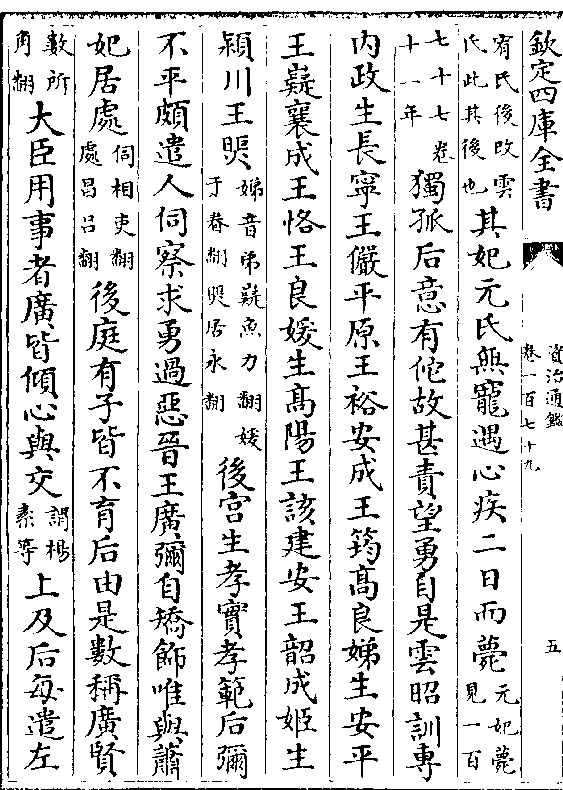 欽定四庫全書
資治通鑑
卷一百七十九
五
宥氏後改雲
氏此其後也
其妃元氏無寵遇心疾二日而薨
元妃薨
見一百
七十七卷
十一年
獨孤后意有佗故甚責望勇自是雲昭訓專
内政生長寧王儼平原王裕安成王筠髙良娣生安平
王嶷襄成王恪王良媛生髙陽王該建安王韶成姬生
潁川王煚
娣音弟嶷魚力翻媛
于眷翻煚居永翻
後宫生孝實孝範后彌
不平頗遣人伺察求勇過惡晉王廣彌自矯飾唯與蕭
妃居處
伺相吏翻
處昌吕翻
後庭有子皆不育后由是數稱廣賢
數所
角翻
大臣用事者廣皆傾心與交
謂楊
素等
上及后每遣左